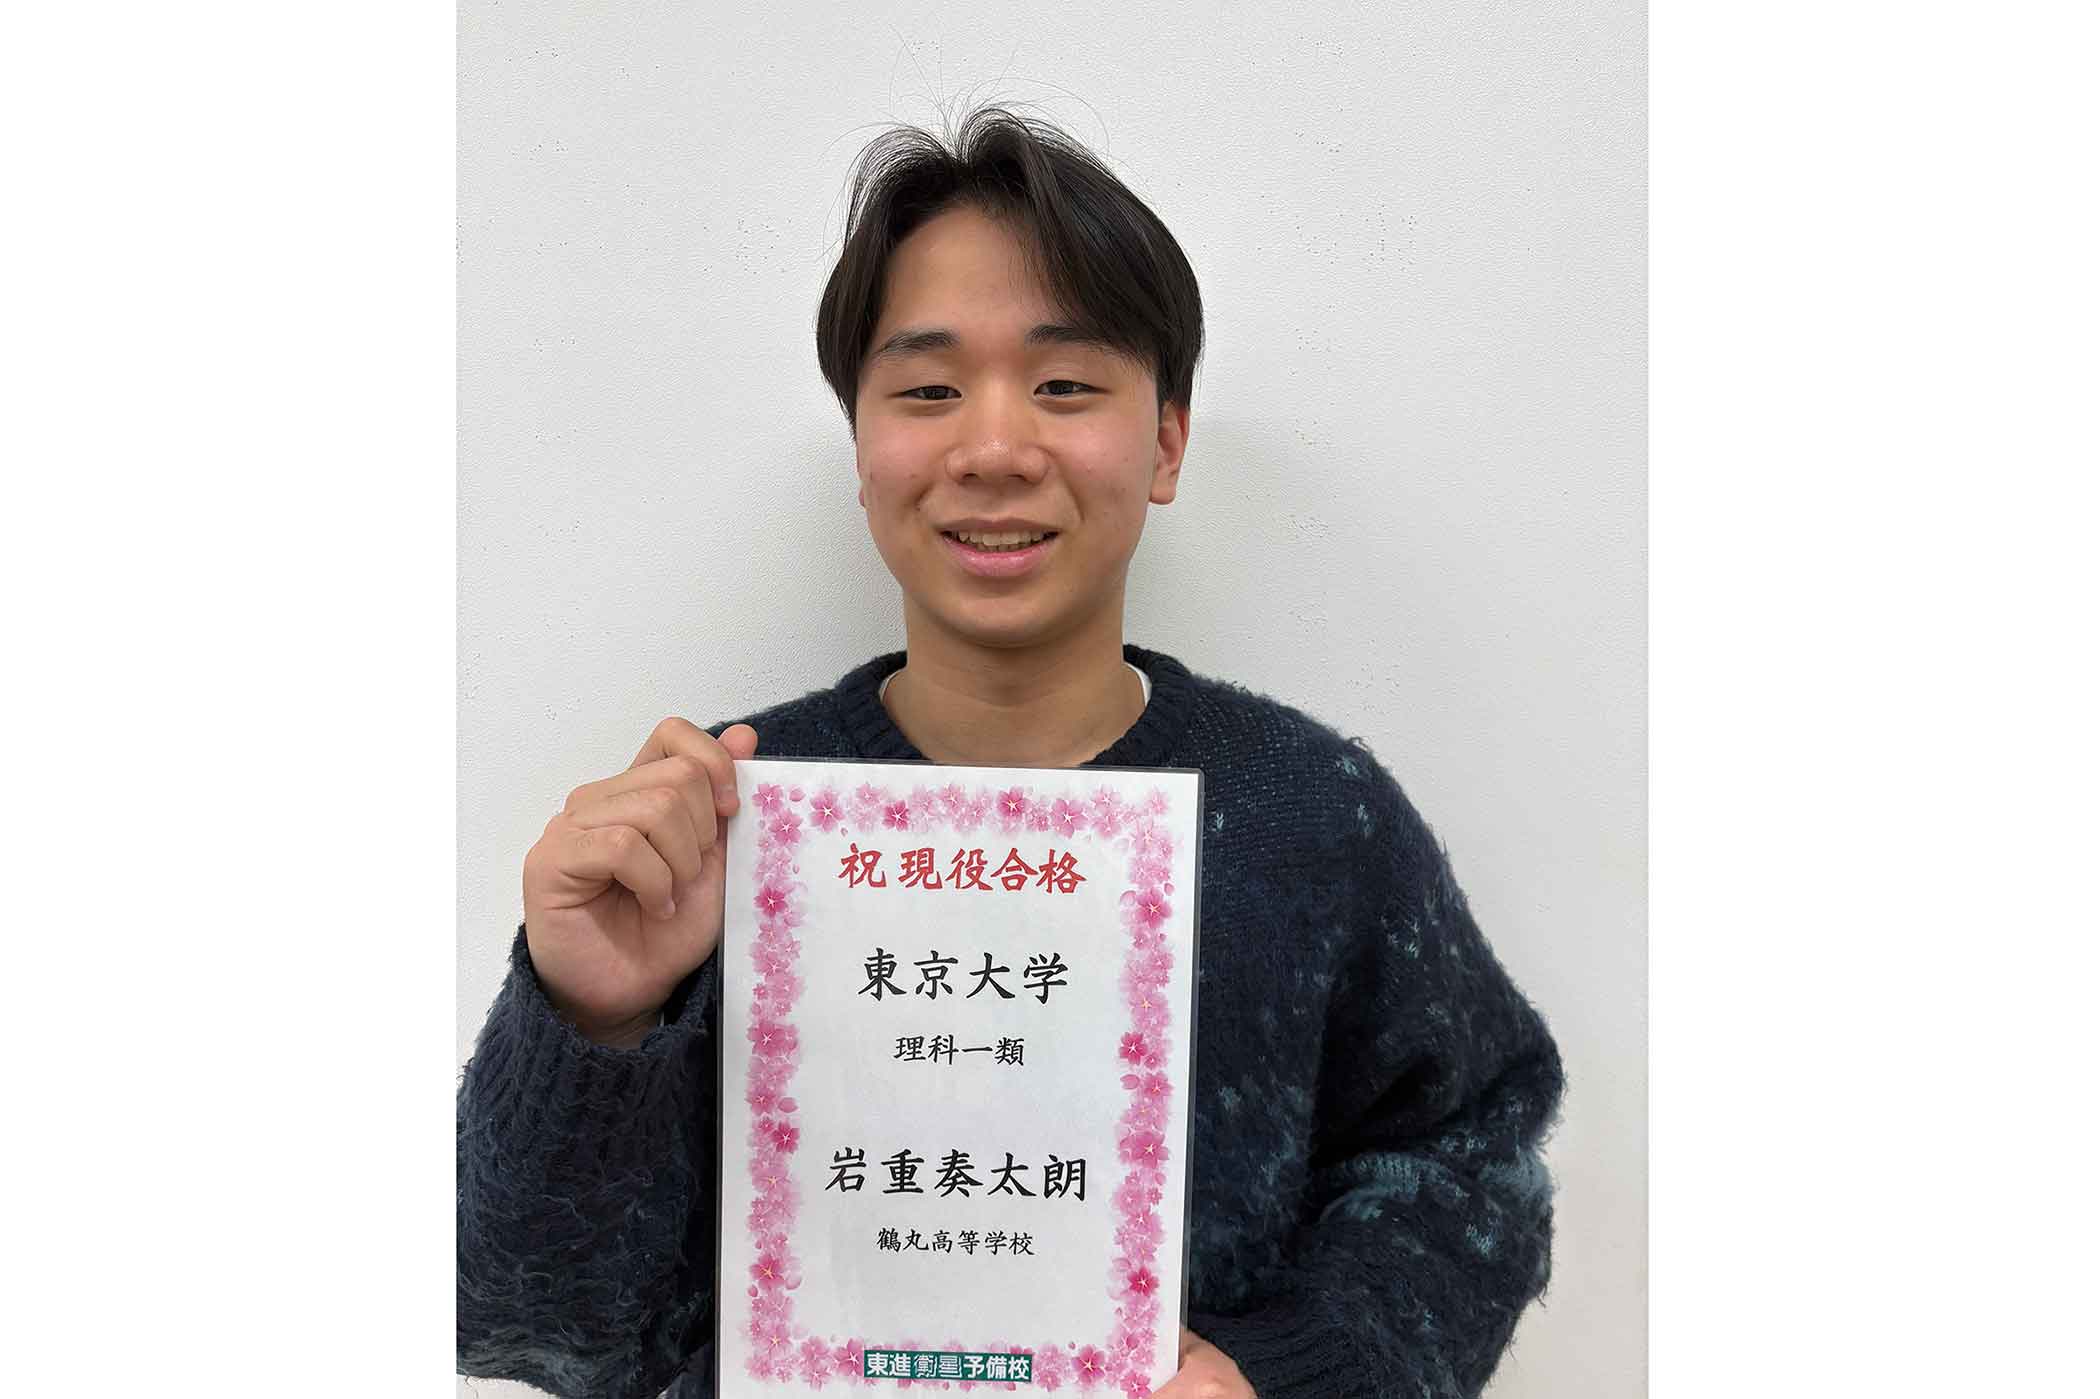 祝 現役合格
東京大学
理科一類
岩重奏太朗
鶴丸高等学校
東進衛星予備校